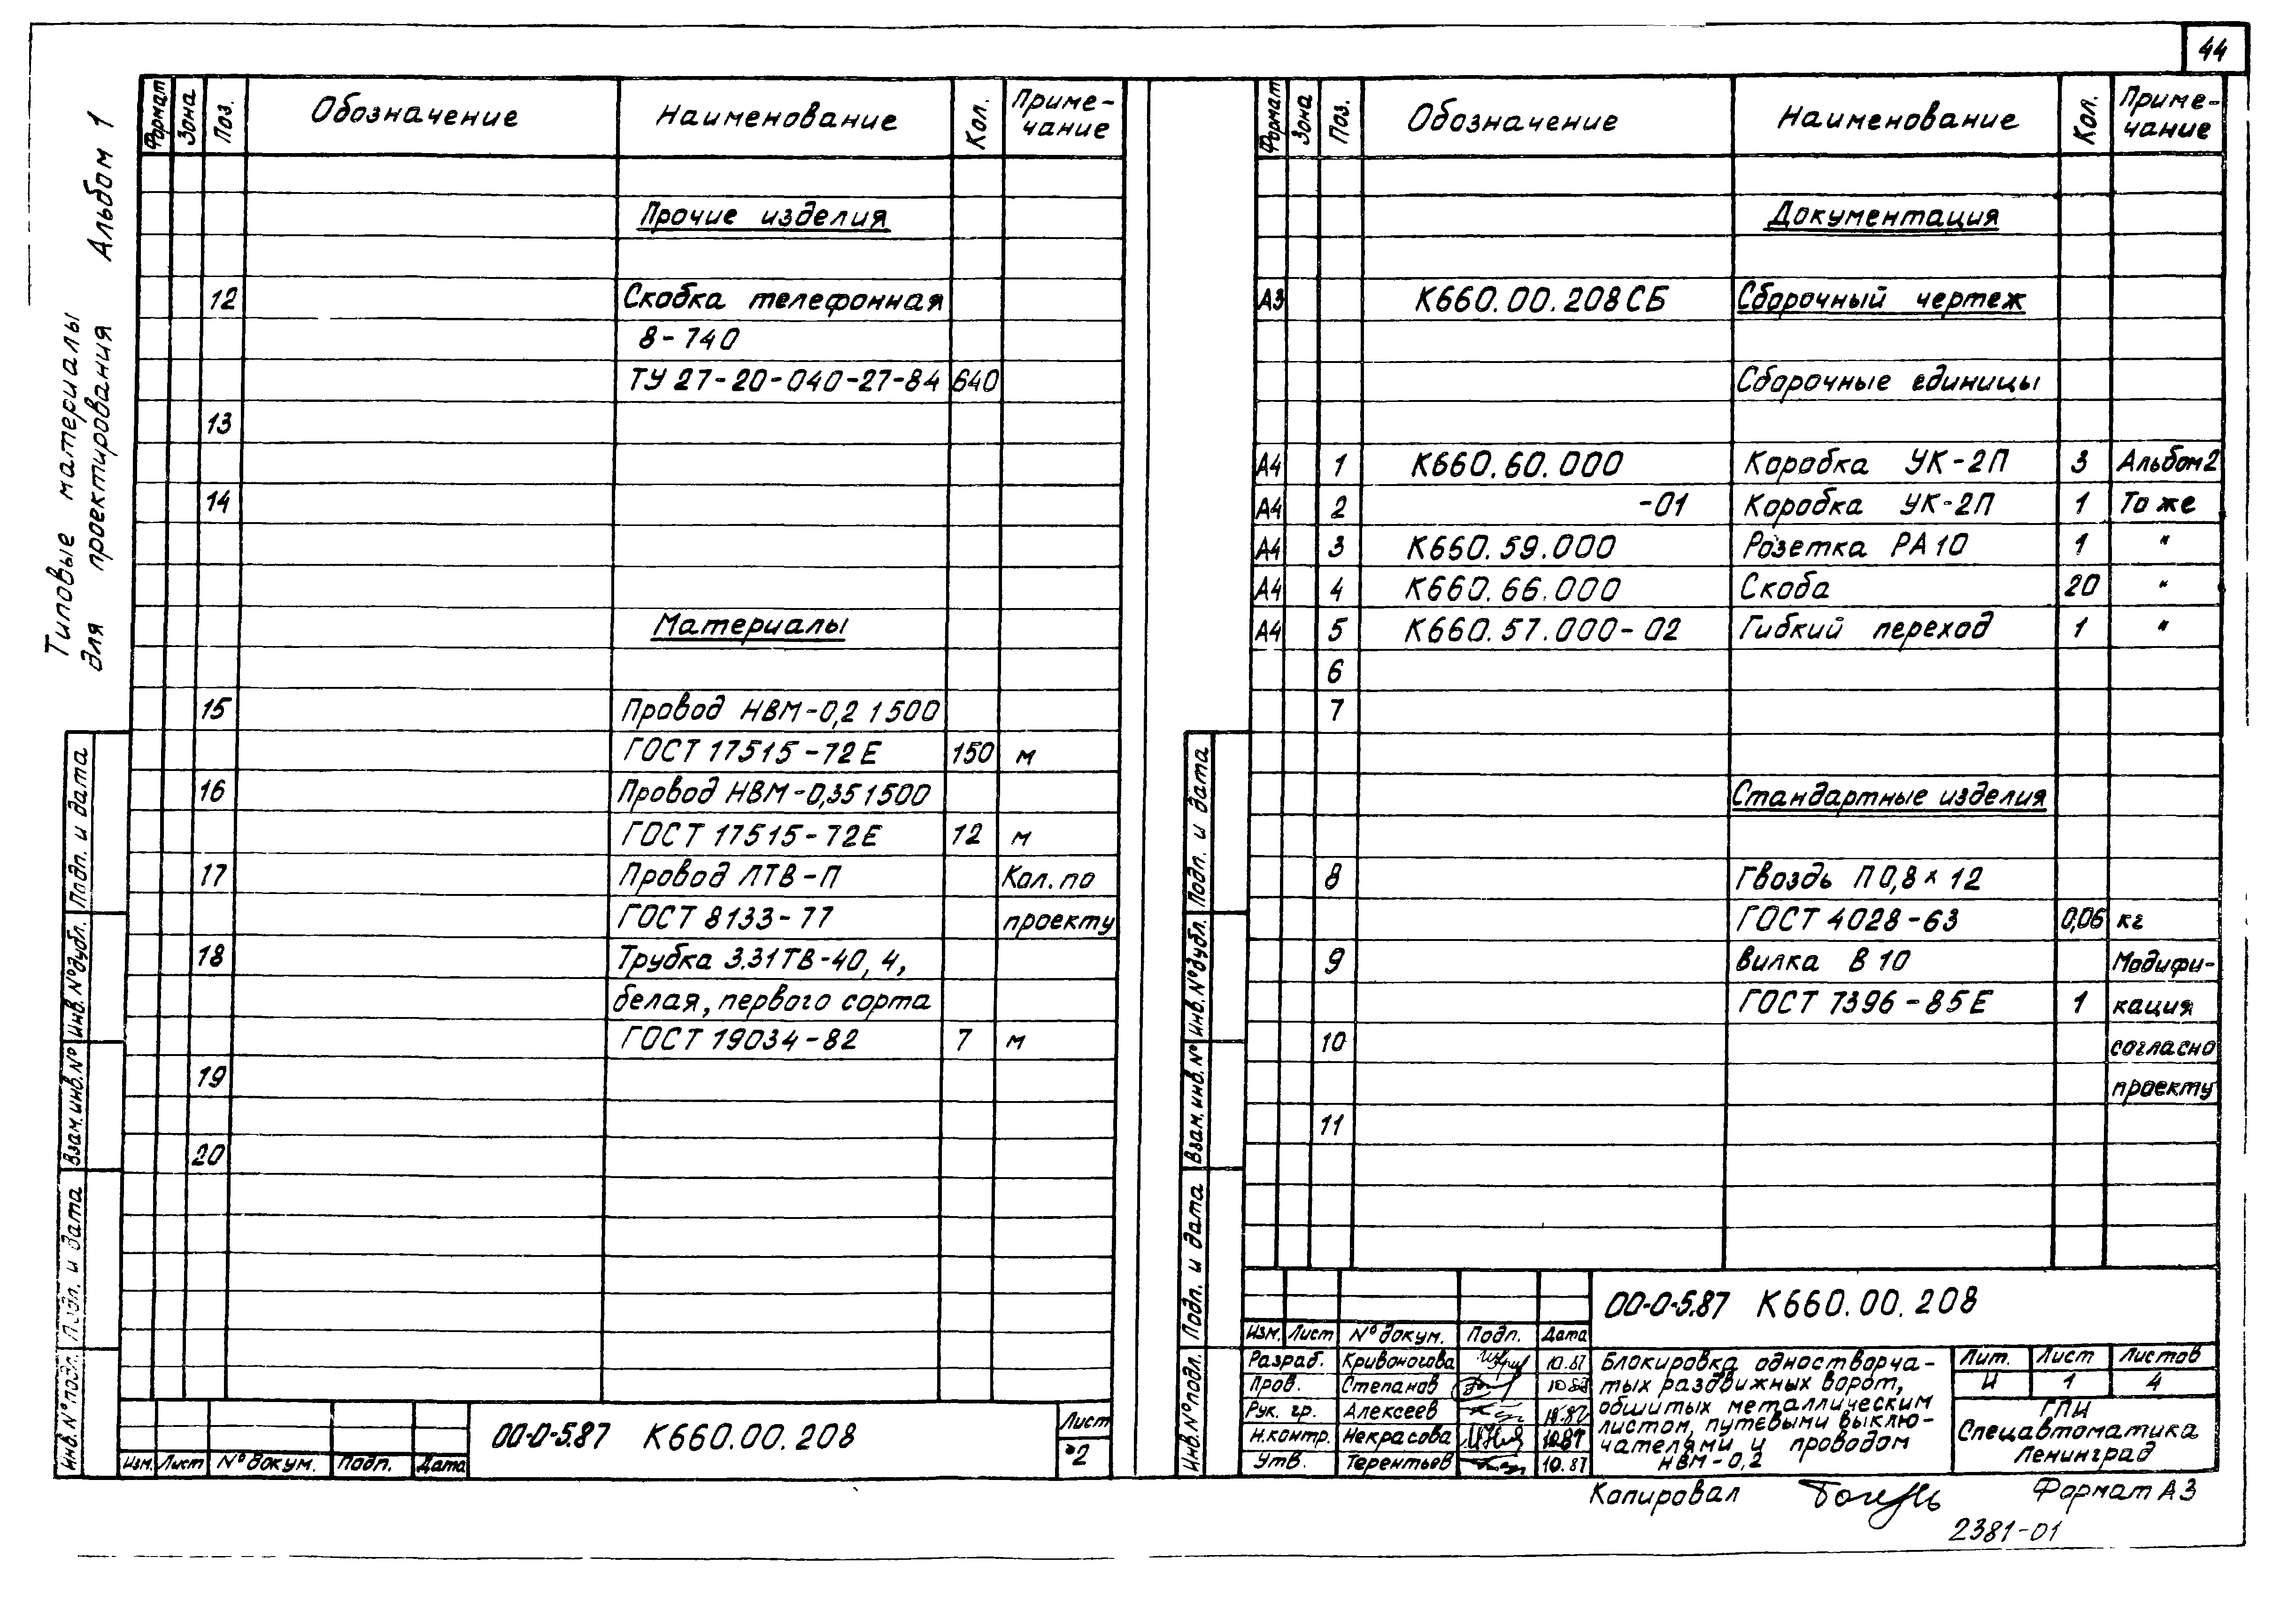 44
Типовые материалы
для проектирования Альбом 1
Формат Зона Поз. Обозначение Наименование Кол. Приме-
чание
Прочие изделия
12 Скобка телефонная
8-740
ТУ 27-20-040-27-84 640
13
14
Материалы
15 Провод НВМ-0,2 1 500
ГОСТ 17515-72Е 150 м
16 Провод НВМ-0,35 1 500
ГОСТ 17515-72Е 12 м
17 Провод ЛТВ-П Кол. по
ГОСТ 8133-77 проекту
18 Трубка 3.31 ТВ-40, 4,
белая, первого сорта
ГОСТ 19034-82 7 м
19
20
Инв.№подл. Подп. и дата Взам.инв.№ Инв.№дубл. Подп. и дата
Изм. Лист №докум. Подп. Дата
00-0-5.87 К660.00.208
Лист
2
Формат Зона Поз. Обозначение Наименование Кол. Приме-
чание
Документация
А3 К660.00.208СБ Сборочный чертеж
Сборочные единицы
А4 1 К660.60.000 Коробка УК-2П 3 Альбом 2
А4 2 -01 Коробка УК-2П 1 То же
А4 3 К660.59.000 Розетка РА10 1 "
А4 4 К660.66.000 Скоба 20 "
А4 5 К660.57.000-02 Гибкий переход 1 "
6
7
Стандартные изделия
8 Гвоздь П 0,8 х 12
ГОСТ 4028-63 0,06 кг
9 Вилка В 10 Модифи-
ГОСТ 7396-85Е 1 кация
10 согласно
проекту
11
Инв.№подл. Подп. и дата Взам.инв.№ Инв.№дубл. Подп. и дата
00-0-5.87 К660.00.208
Изм. Лист №докум. Подп. Дата
Разраб. Кривоногова 10.87
Пров. Степанов 10.87
Рук. гр. Алексеев 10.87
Н.контр. Некрасова 10.87
Утв. Терентьев 10.87
Блокировка одностворча-
тых раздвижных ворот,
обшитых металлическим
листом, путевыми выклю-
чателями и проводом
НВМ-0,2
Лит. Лист Листов
И 1 4
ГПИ
Спецавтоматика
Ленинград
Копировал Формат А3
2381-01